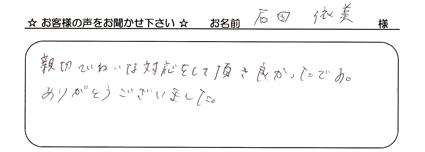 ☆ お客様の声をお聞かせ下さい ☆ お名前 石田 依美 様
親切でいねいな対応をして頂き良かったです。
ありがとうございました。